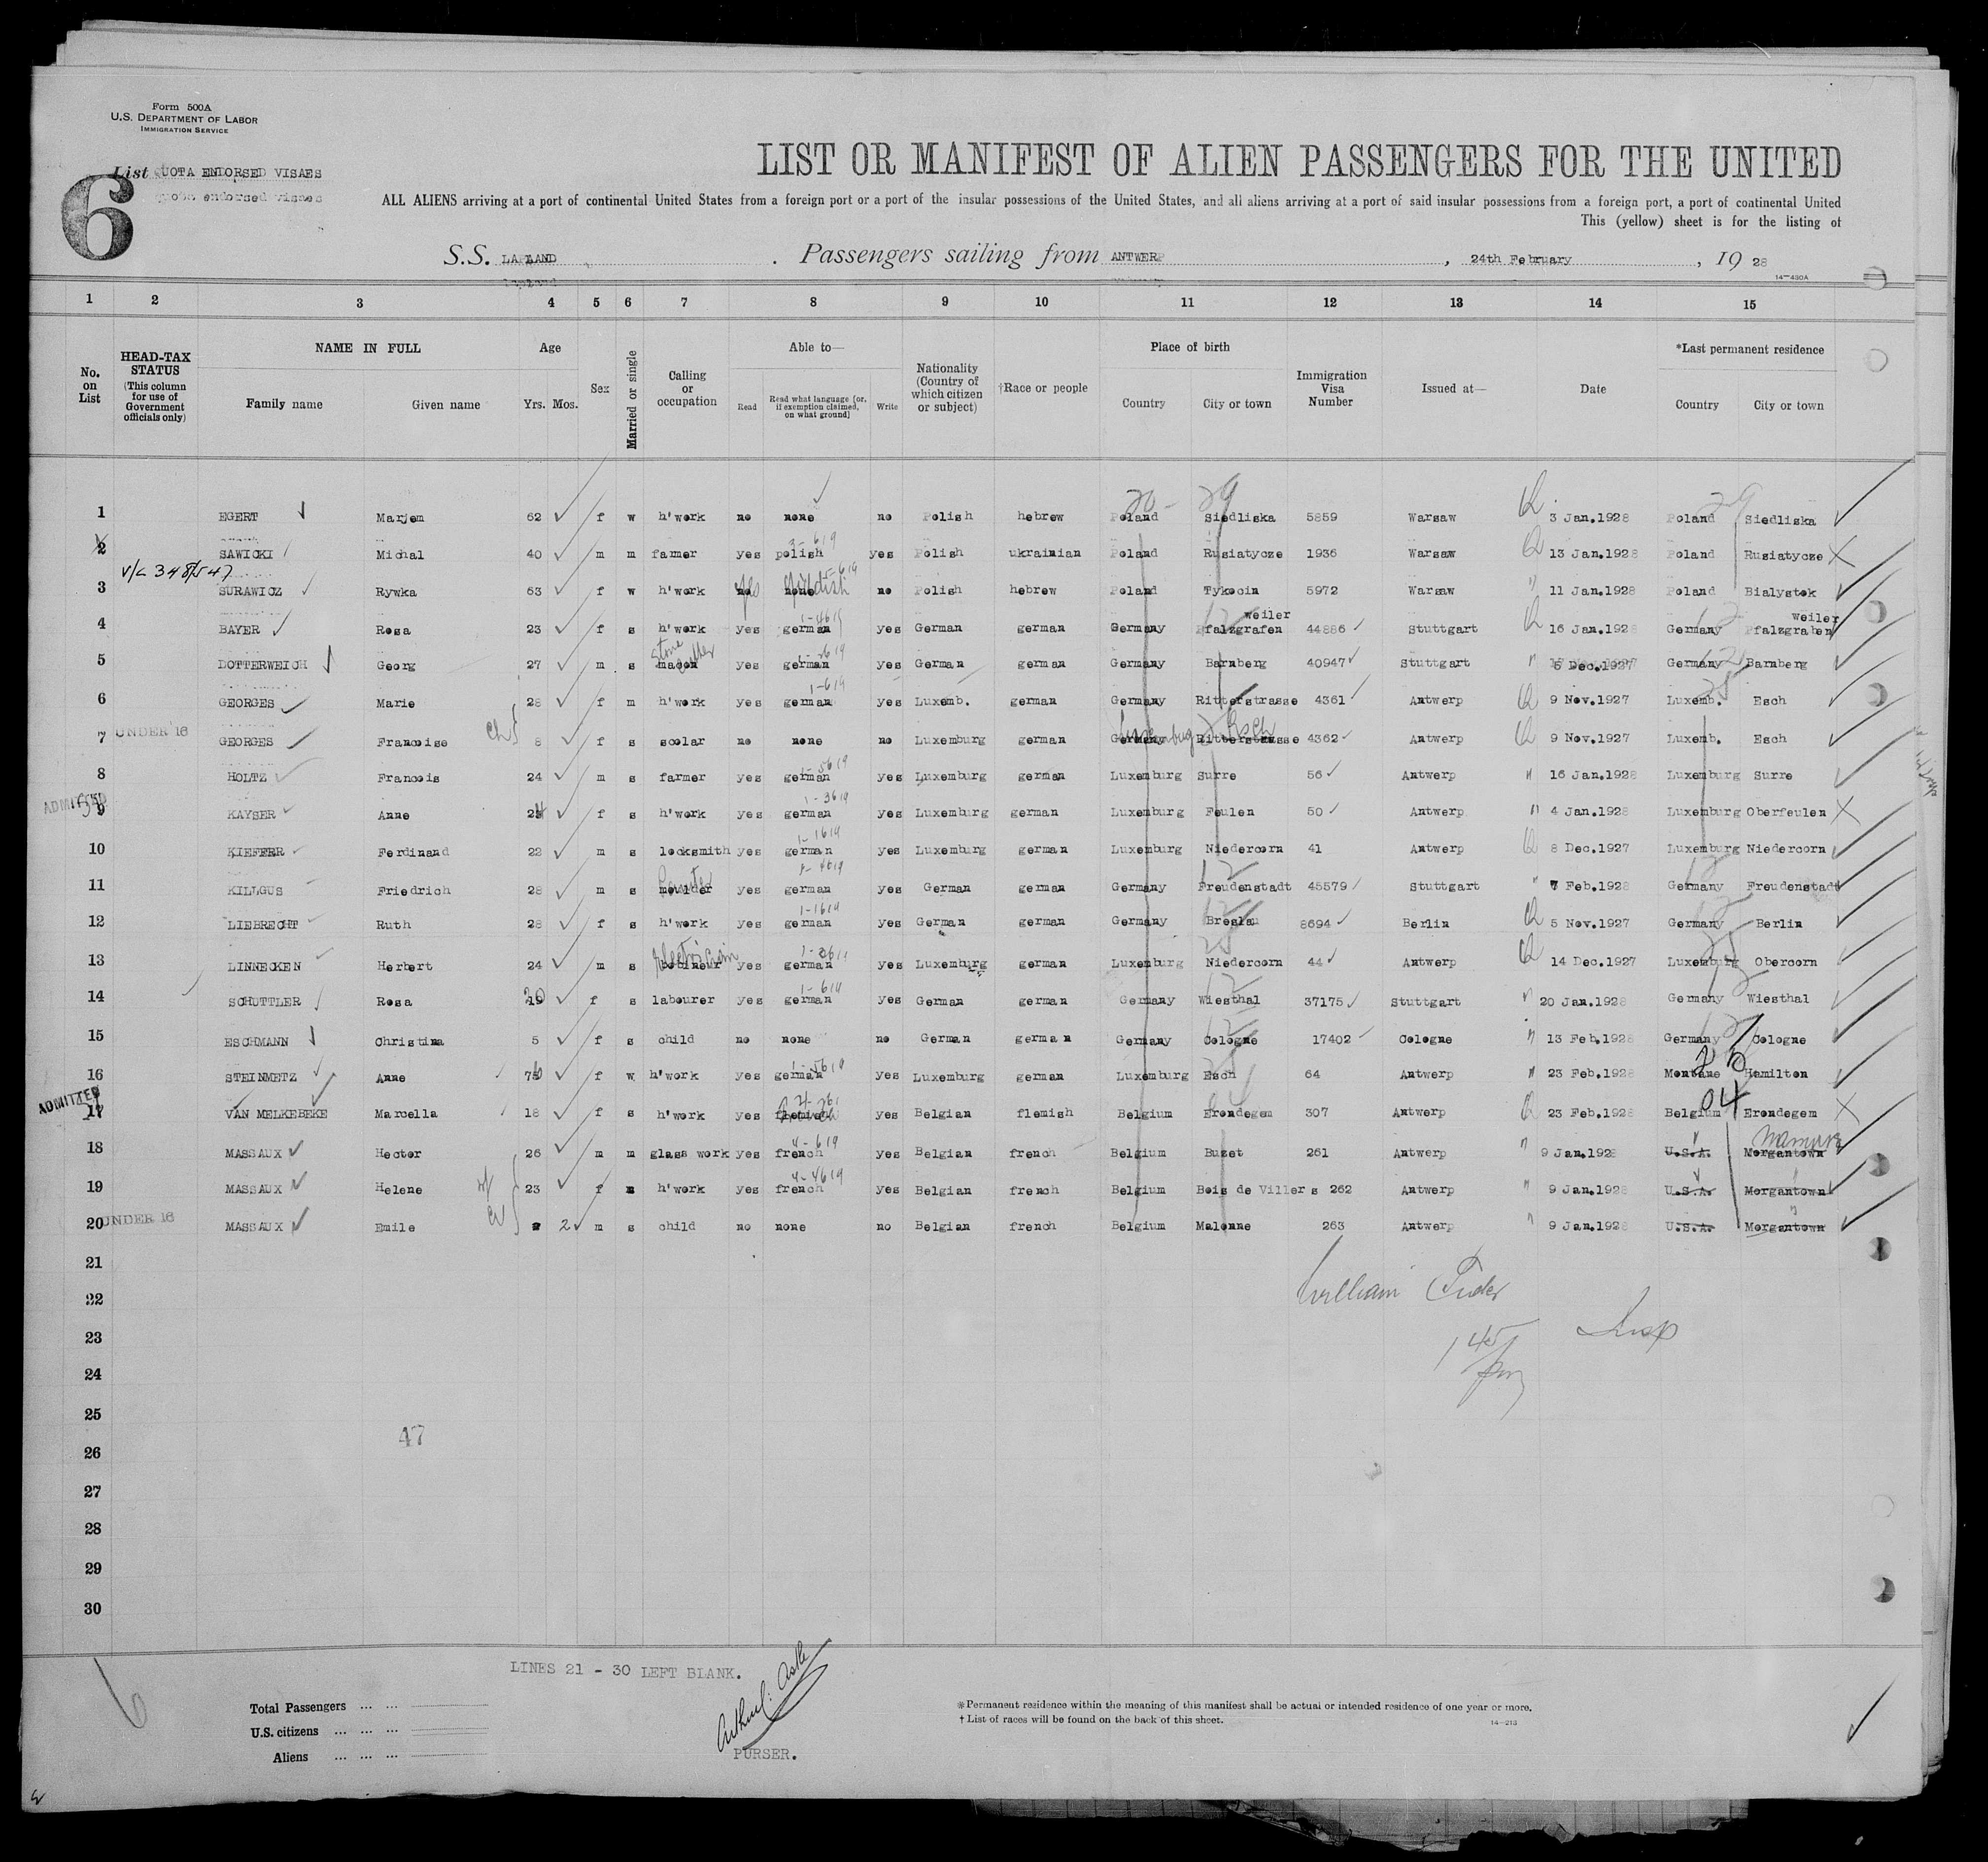 Form 500A
U.S. DEPARTMENT OF LABOR
IMMIGRATION SERVICE
List QUOTA ENDORSED VISAES
6
LIST OR MANIFEST OF ALIEN PASSENGERS FOR THE UNITED
ALL ALIENS arriving at a port of continental United States from a foreign port or a port of the insular possessions of the United States, and all aliens arriving at a port of said insular possessions from a foreign port, a port of continental United
This (yellow) sheet is for the listing of
S.S. LAPLAND . Passengers sailing from ANTWERP , 24th February , 19 28
14—430A
1 2 3 4 5 6 7 8 9 10 11 12 13 14 15
No. on List
HEAD-TAX STATUS (This column for use of Government officials only)
NAME IN FULL
Family name Given name
Age
Yrs. Mos.
Sex
Married or single
Calling or occupation
Able to—
Read Read what language [or, if exemption claimed, on what ground] Write
Nationality (Country of which citizen or subject)
†Race or people
Place of birth
Country City or town
Immigration Visa Number
Issued at—
Date
*Last permanent residence
Country City or town
1 EGERT Marjem 62 f w h'work no none no Polish hebrew Poland Siedliska 5859 Warsaw 3 Jan.1928 Poland Siedliska
2 SAWICKI Michal 40 m m farmer yes polish yes Polish ukrainian Poland Rusiatycze 1936 Warsaw 13 Jan.1928 Poland Rusiatycze
3 SURAWICZ Rywka 63 f w h'work yes yiddish no Polish hebrew Poland Tykocin 5972 Warsaw 11 Jan.1928 Poland Bialystok
4 BAYER Rosa 23 f s h'work yes german yes German german Germany Pfalzgrafen weiler 44886 Stuttgart 16 Jan.1928 Germany Pfalzgrafen weiler
5 DOTTERWEICH Georg 27 m s mason Stone cutter yes german yes German german Germany Barnberg 40947 Stuttgart 5 Dec.1927 Germany Barnberg
6 GEORGES Marie 28 f m h'work yes german yes Luxemb. german Germany Ritterstrasse 4361 Antwerp 9 Nov.1927 Luxemb. Esch
UNDER 16
7 GEORGES Francoise ch 8 f s scolar no none no Luxemburg german Germany Luxemburg Ritterstrasse Esch 4362 Antwerp 9 Nov.1927 Luxemb. Esch
8 HOLTZ Francois 24 m s farmer yes german yes Luxemburg german Luxemburg Surre 56 Antwerp 16 Jan.1928 Luxemburg Surre
ADMITTED
9 KAYSER Anne 24 f s h'work yes german yes Luxemburg german Luxemburg Feulen 50 Antwerp 4 Jan.1928 Luxemburg Oberfeulen
10 KIEFFER Ferdinand 22 m s locksmith yes german yes Luxemburg german Luxemburg Niedercorn 41 Antwerp 8 Dec.1927 Luxemburg Niedercorn
11 KILLGUS Friedrich 28 m s moulder yes german yes German german Germany Freudenstadt 45579 Stuttgart 7 Feb.1928 Germany Freudenstadt
12 LIEBRECHT Ruth 28 f s h'work yes german yes German german Germany Breslau 8694 Berlin 5 Nov.1927 Germany Berlin
13 LINNECKEN Herbert 24 m s Electrician yes german yes Luxemburg german Luxemburg Niedercorn 44 Antwerp 14 Dec.1927 Luxemburg Obercorn
14 SCHUTTLER Rosa 20 f s labourer yes german yes German german Germany Wiesthal 37175 Stuttgart 20 Jan.1928 Germany Wiesthal
15 ESCHMANN Christina 5 f s child no none no German german Germany Cologne 17402 Cologne 13 Feb.1928 Germany Cologne
16 STEINMETZ Anne 76 f w h'work yes german yes Luxemburg german Luxemburg Esch 64 Antwerp 23 Feb.1928 Montane Hamilton
ADMITTED
17 VAN MELKEBEKE Marcella 18 f s h'work yes flemish yes Belgian flemish Belgium Erondegem 307 Antwerp 23 Feb.1928 Belgium Erondegem
18 MASSAUX Hector 26 m m glass work yes french yes Belgian french Belgium Buzet 261 Antwerp 9 Jan.1928 U.S.A. Morgantown
19 MASSAUX Helene wf 23 f m h'work yes french yes Belgian french Belgium Bois de Villers 262 Antwerp 9 Jan.1928 U.S.A. Morgantown
UNDER 16
20 MASSAUX Emile 2 m s child no none no Belgian french Belgium Malonne 263 Antwerp 9 Jan.1928 U.S.A. Morgantown
21
22
23
24
25
26
27
28
29
30
William
Insp
1 45 pm
47
LINES 21 - 30 LEFT BLANK.
PURSER.
Total Passengers ... ...
U.S. citizens ... ... ...
Aliens ... ... ...
*Permanent residence within the meaning of this manifest shall be actual or intended residence of one year or more.
† List of races will be found on the back of this sheet.
14—213